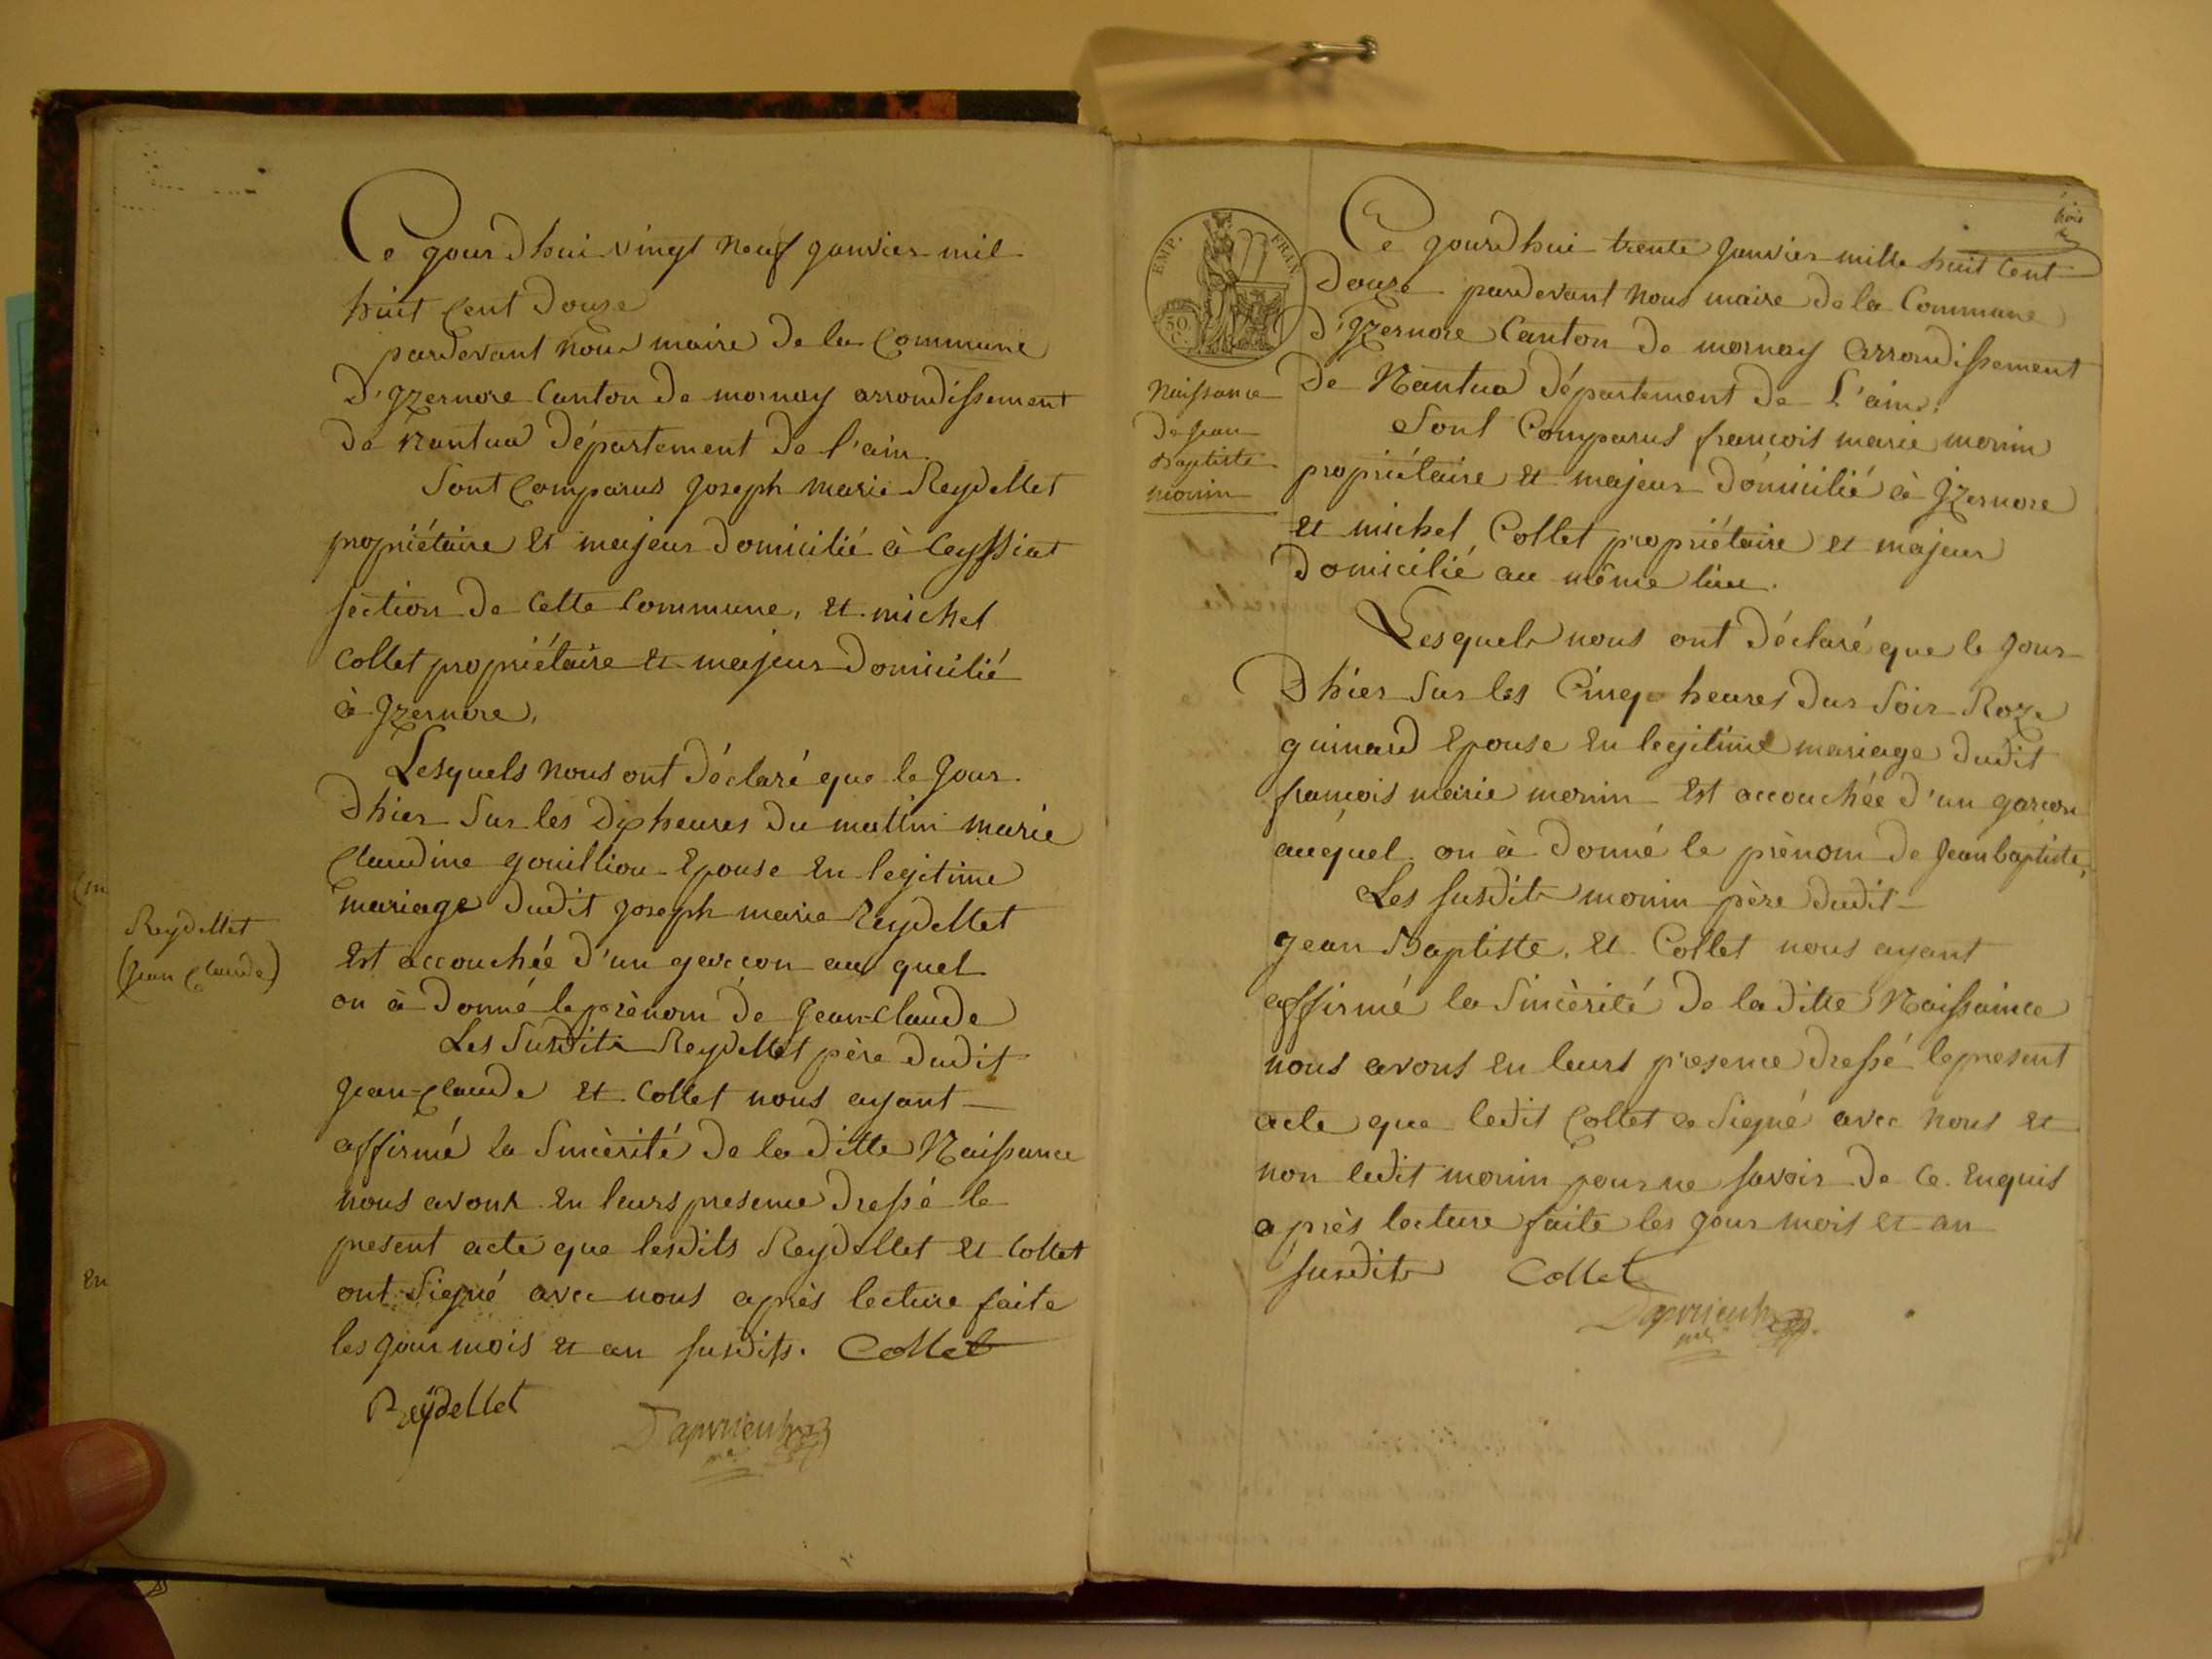 Ce jourdhui vingt neuf janvier mil
huit cent douze
pardevant nous maire de la Commune
d'Izernore Canton de mornay arrondissement
de Nantua département de l'ain
Sont Comparus joseph marie Reydellet
propriétaire et majeur domicilié à Ceyssiat
section de Cette Commune, et michel
Collet propriétaire et majeur domicilié
à Izernore,
Lesquels nous ont déclaré que le jour
d'hier sur les Dix heures du mattin marie
Claudine gouilliou Epouse En legitime
mariage dudit joseph marie Reydellet
Est accouchée d'un garçon au quel
on à donné le prènom de jean-claude
Les Susdits Reydellet père dudit
jean-claude et Collet nous ayant
affirmé la Sincèrité de la ditte Naissance
nous avons En leurs presence dressé le
present acte que lesdits Reydellet et Collet
ont Signé avec nous après lecture faite
les jour mois et an susdits. Collet
Reÿdellet
Reydellet
(jean Claude)
En
EMP. FRAN.
50 C.
trois
Naissance
de jean
Baptiste
monin
Ce jourdhui trente janvier mille huit Cent
douze pardevant nous maire de la Commune
d'Izernore Canton de mornay Arrondissement
de Nantua département de L'ain.
Sont Comparus françois marie monin
propriétaire et majeur domicilié à Izernore
et michel Collet propriétaire et majeur
domicilié au même lieu.
Lesquels nous ont déclaré que le jour
d'hier Sur les Cinq heures du Soir Roze
guinard Epouse En legitime mariage dudit
françois marie monin Est accouchée d'un garçon
auquel on à donné le prènom de jean baptiste,
Les susdits monin père dudit
jean Baptiste, et Collet nous ayant
affirmé la Sincèrité de la ditte Naissance
nous avons En leurs presence dressé le present
acte que ledit Collet a Signé avec nous et
non ledit monin pour ne savoir de Ce Enquis
après lecture faite les jour mois et an
susdits Collet